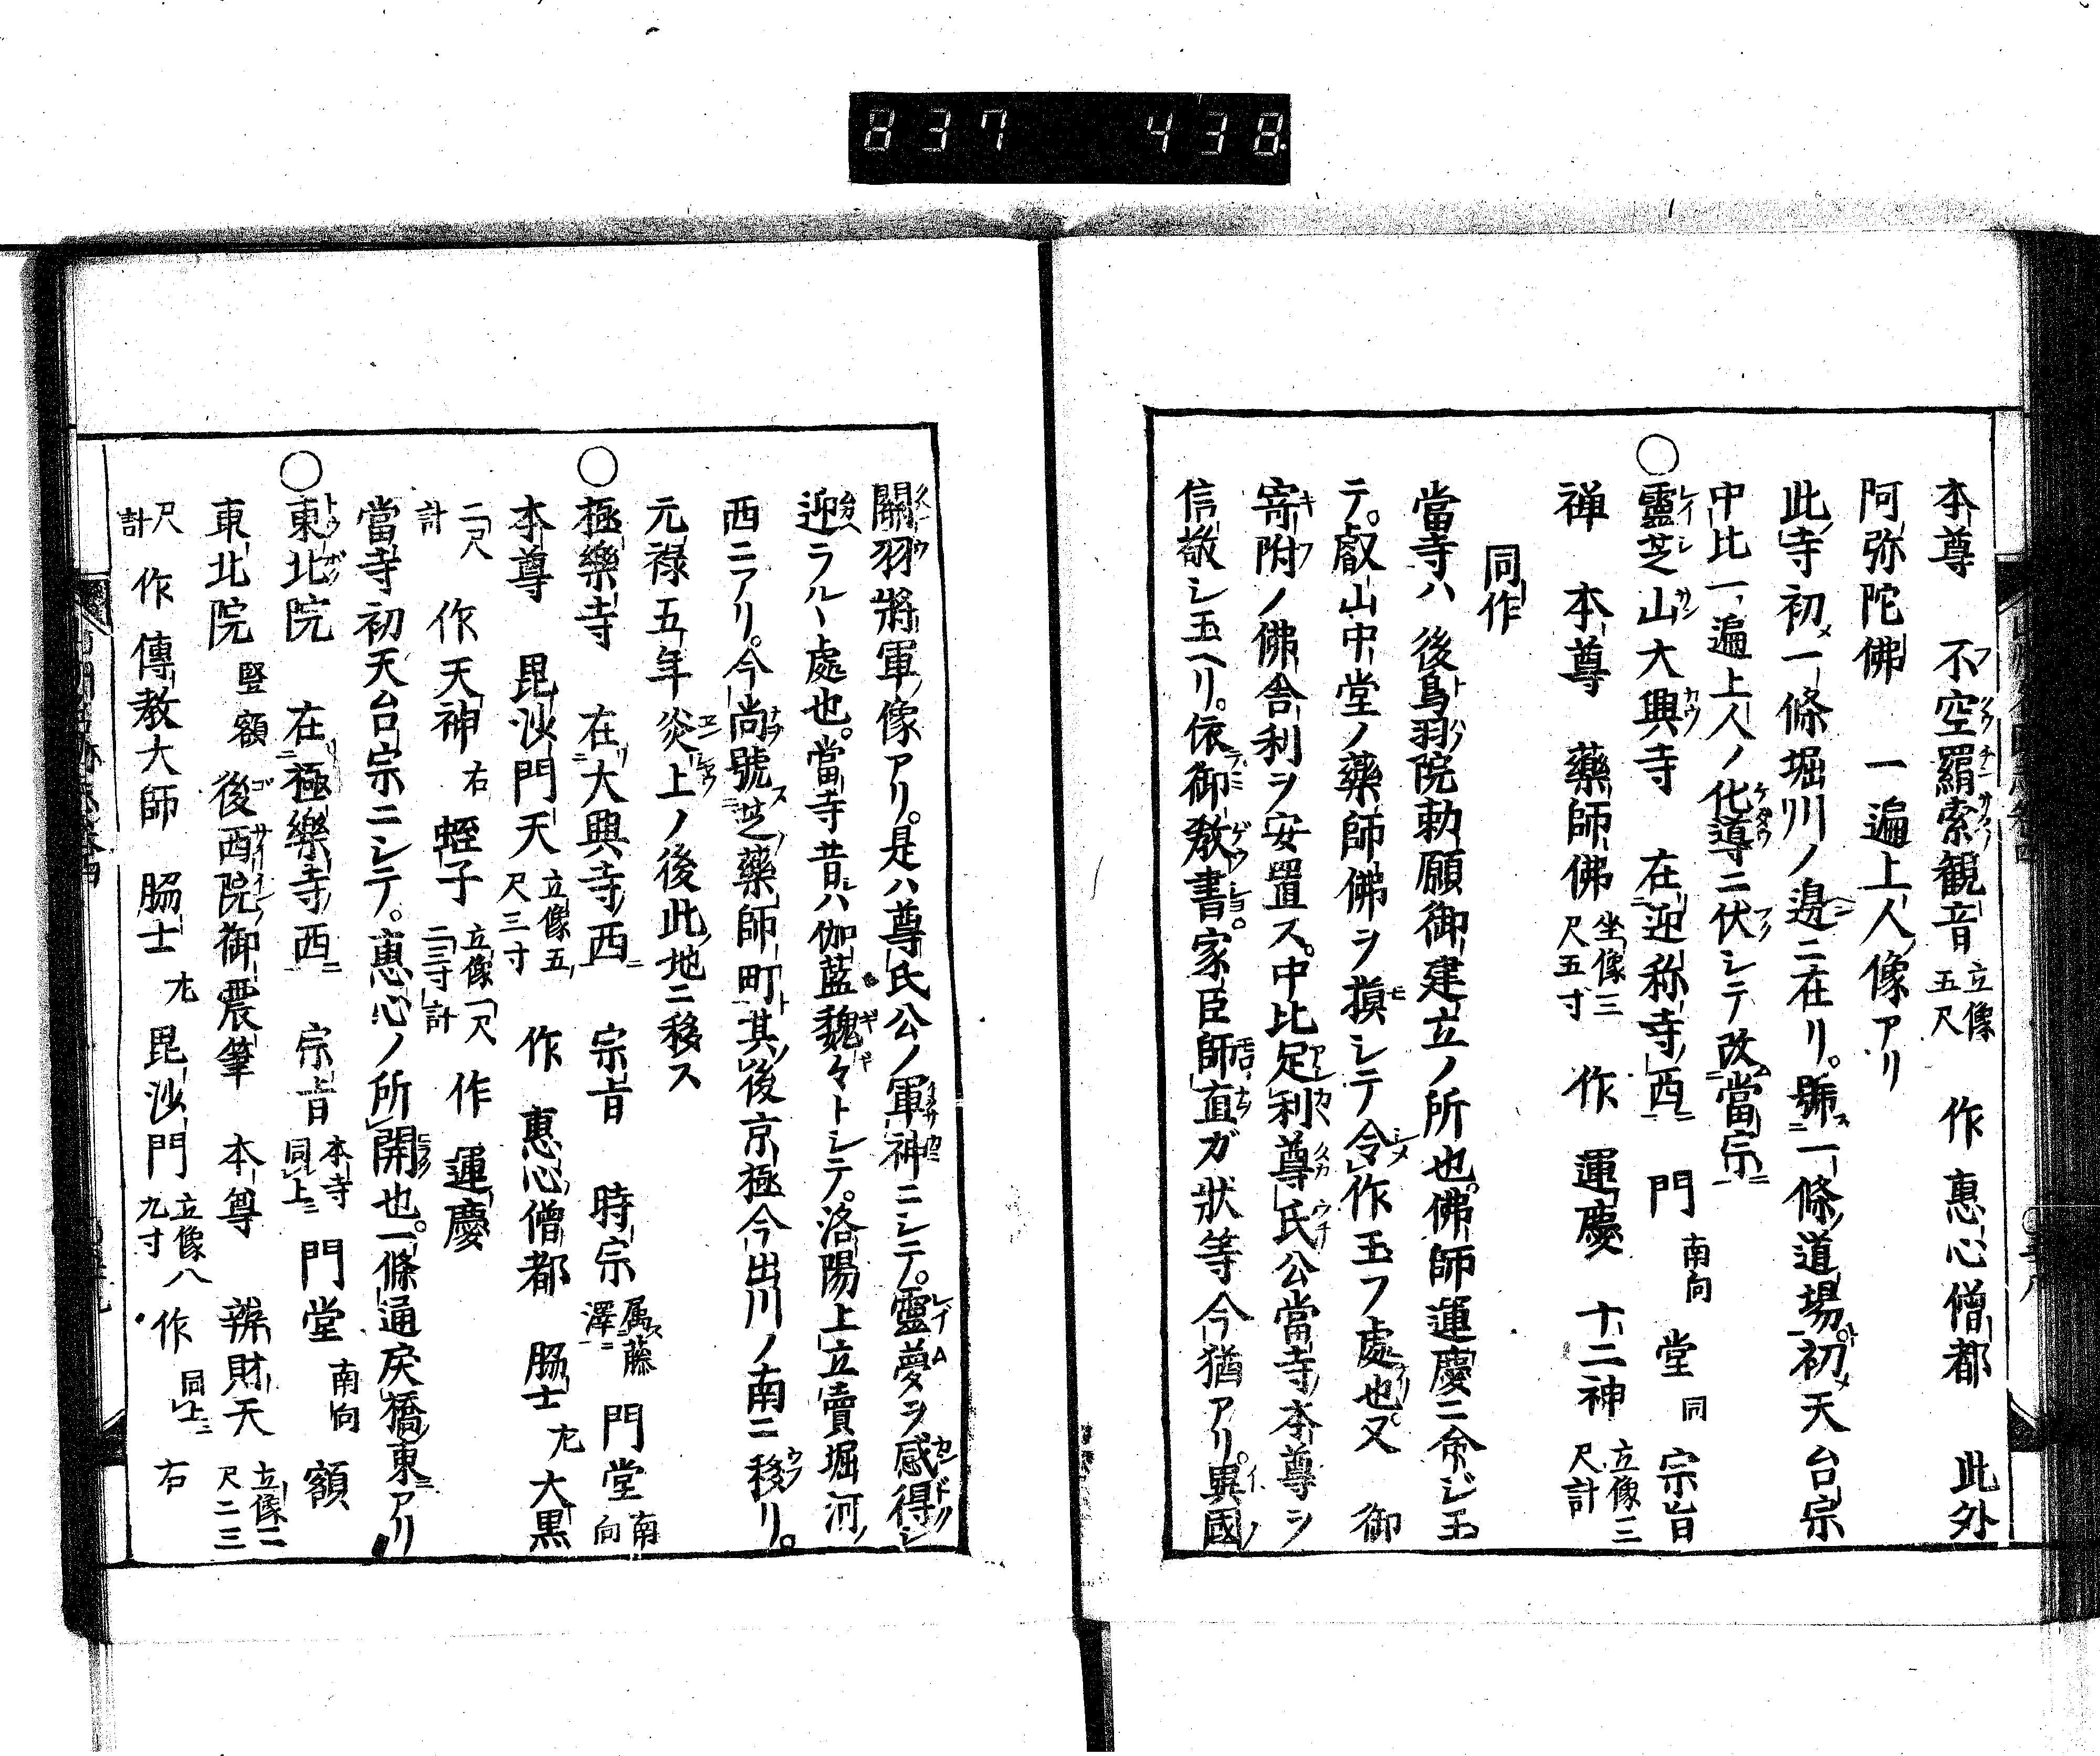 837 438
本尊 不空羂索観音 立像五尺 作 惠心僧都 此外
阿弥陀佛 一遍上人像アリ
此寺初メ一條堀川ノ邊ニ在リ。號ス二一條道塲ト一初メ天台宗
中比一遍上人ノ化導ニ伏シテ改ム二當宗ニ一
○靈芝山大興寺 在二迎称寺ノ西ニ一 門 南向 堂 同 宗旨
禅 本尊 藥師佛 坐像三尺五寸 作 運慶 十二神 立像三尺計
同作
當寺ハ 後鳥羽院勅願御建立ノ所也。佛師運慶ニ命ジ玉
テ。叡山中堂ノ藥師佛ヲ摸シテ令作玉フ處也。又 御
寄附ノ佛舎利ヲ安置ス。中比足利尊氏公當寺本尊ヲ
信敬シ玉ヘリ。依御教書。家臣師直ガ狀等今猶アリ。異國ノ
關羽將軍ノ像アリ。是ハ尊氏公ノ軍神ニシテ。靈夢ヲ感得シ
迎ラルヽ處也。當寺昔シハ伽藍魏々トシテ。洛陽上立賣堀河ノ
西ニアリ。今尚號ス二芝ノ藥師町ト一其後京極今出川ノ南ニ移リ。
元禄五年炎上ノ後此地ニ移ス
○極樂寺 在リ二大興寺ノ西ニ一 宗旨 時宗 属ス二藤澤ニ一 門堂 南向
本尊 毘沙門天 立像五尺三寸 作 惠心僧都 脇士 左 大黒
二尺計 作 天神 右 蛭子 立像一尺二三寸計 作 運慶
當寺初天台宗ニシテ。惠心ノ所開也。一條通戻橋ノ東ニアリ
○東北院 在リ二極樂寺ノ西ニ一 宗旨 本寺同上ニ 門堂 南向 額
東北院 竪額 後西院御震筆 本尊 辨財天 立像二尺二三
尺計 作 傳教大師 脇士 左 毘沙門 立像八九寸 作 同上ニ 右